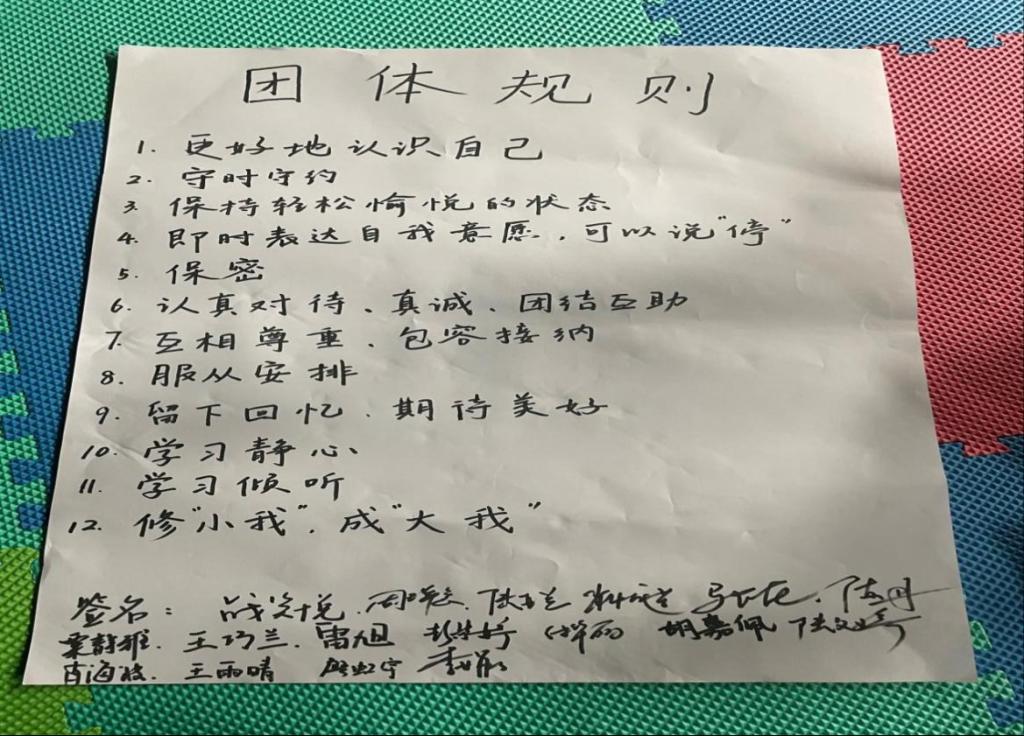 团体规则
1. 更好地认识自己
2. 守时守约
3. 保持轻松愉悦的状态
4. 即时表达自我意愿，可以说"停"
5. 保密
6. 认真对待、真诚、团结互助
7. 互相尊重、包容接纳
8. 服从安排
9. 留下回忆、期待美好
10. 学习静心、
11. 学习倾听
12. 修"小我"，成"大我"
签名：
王巧兰. 雷旭 胡嘉佩
王雨晴